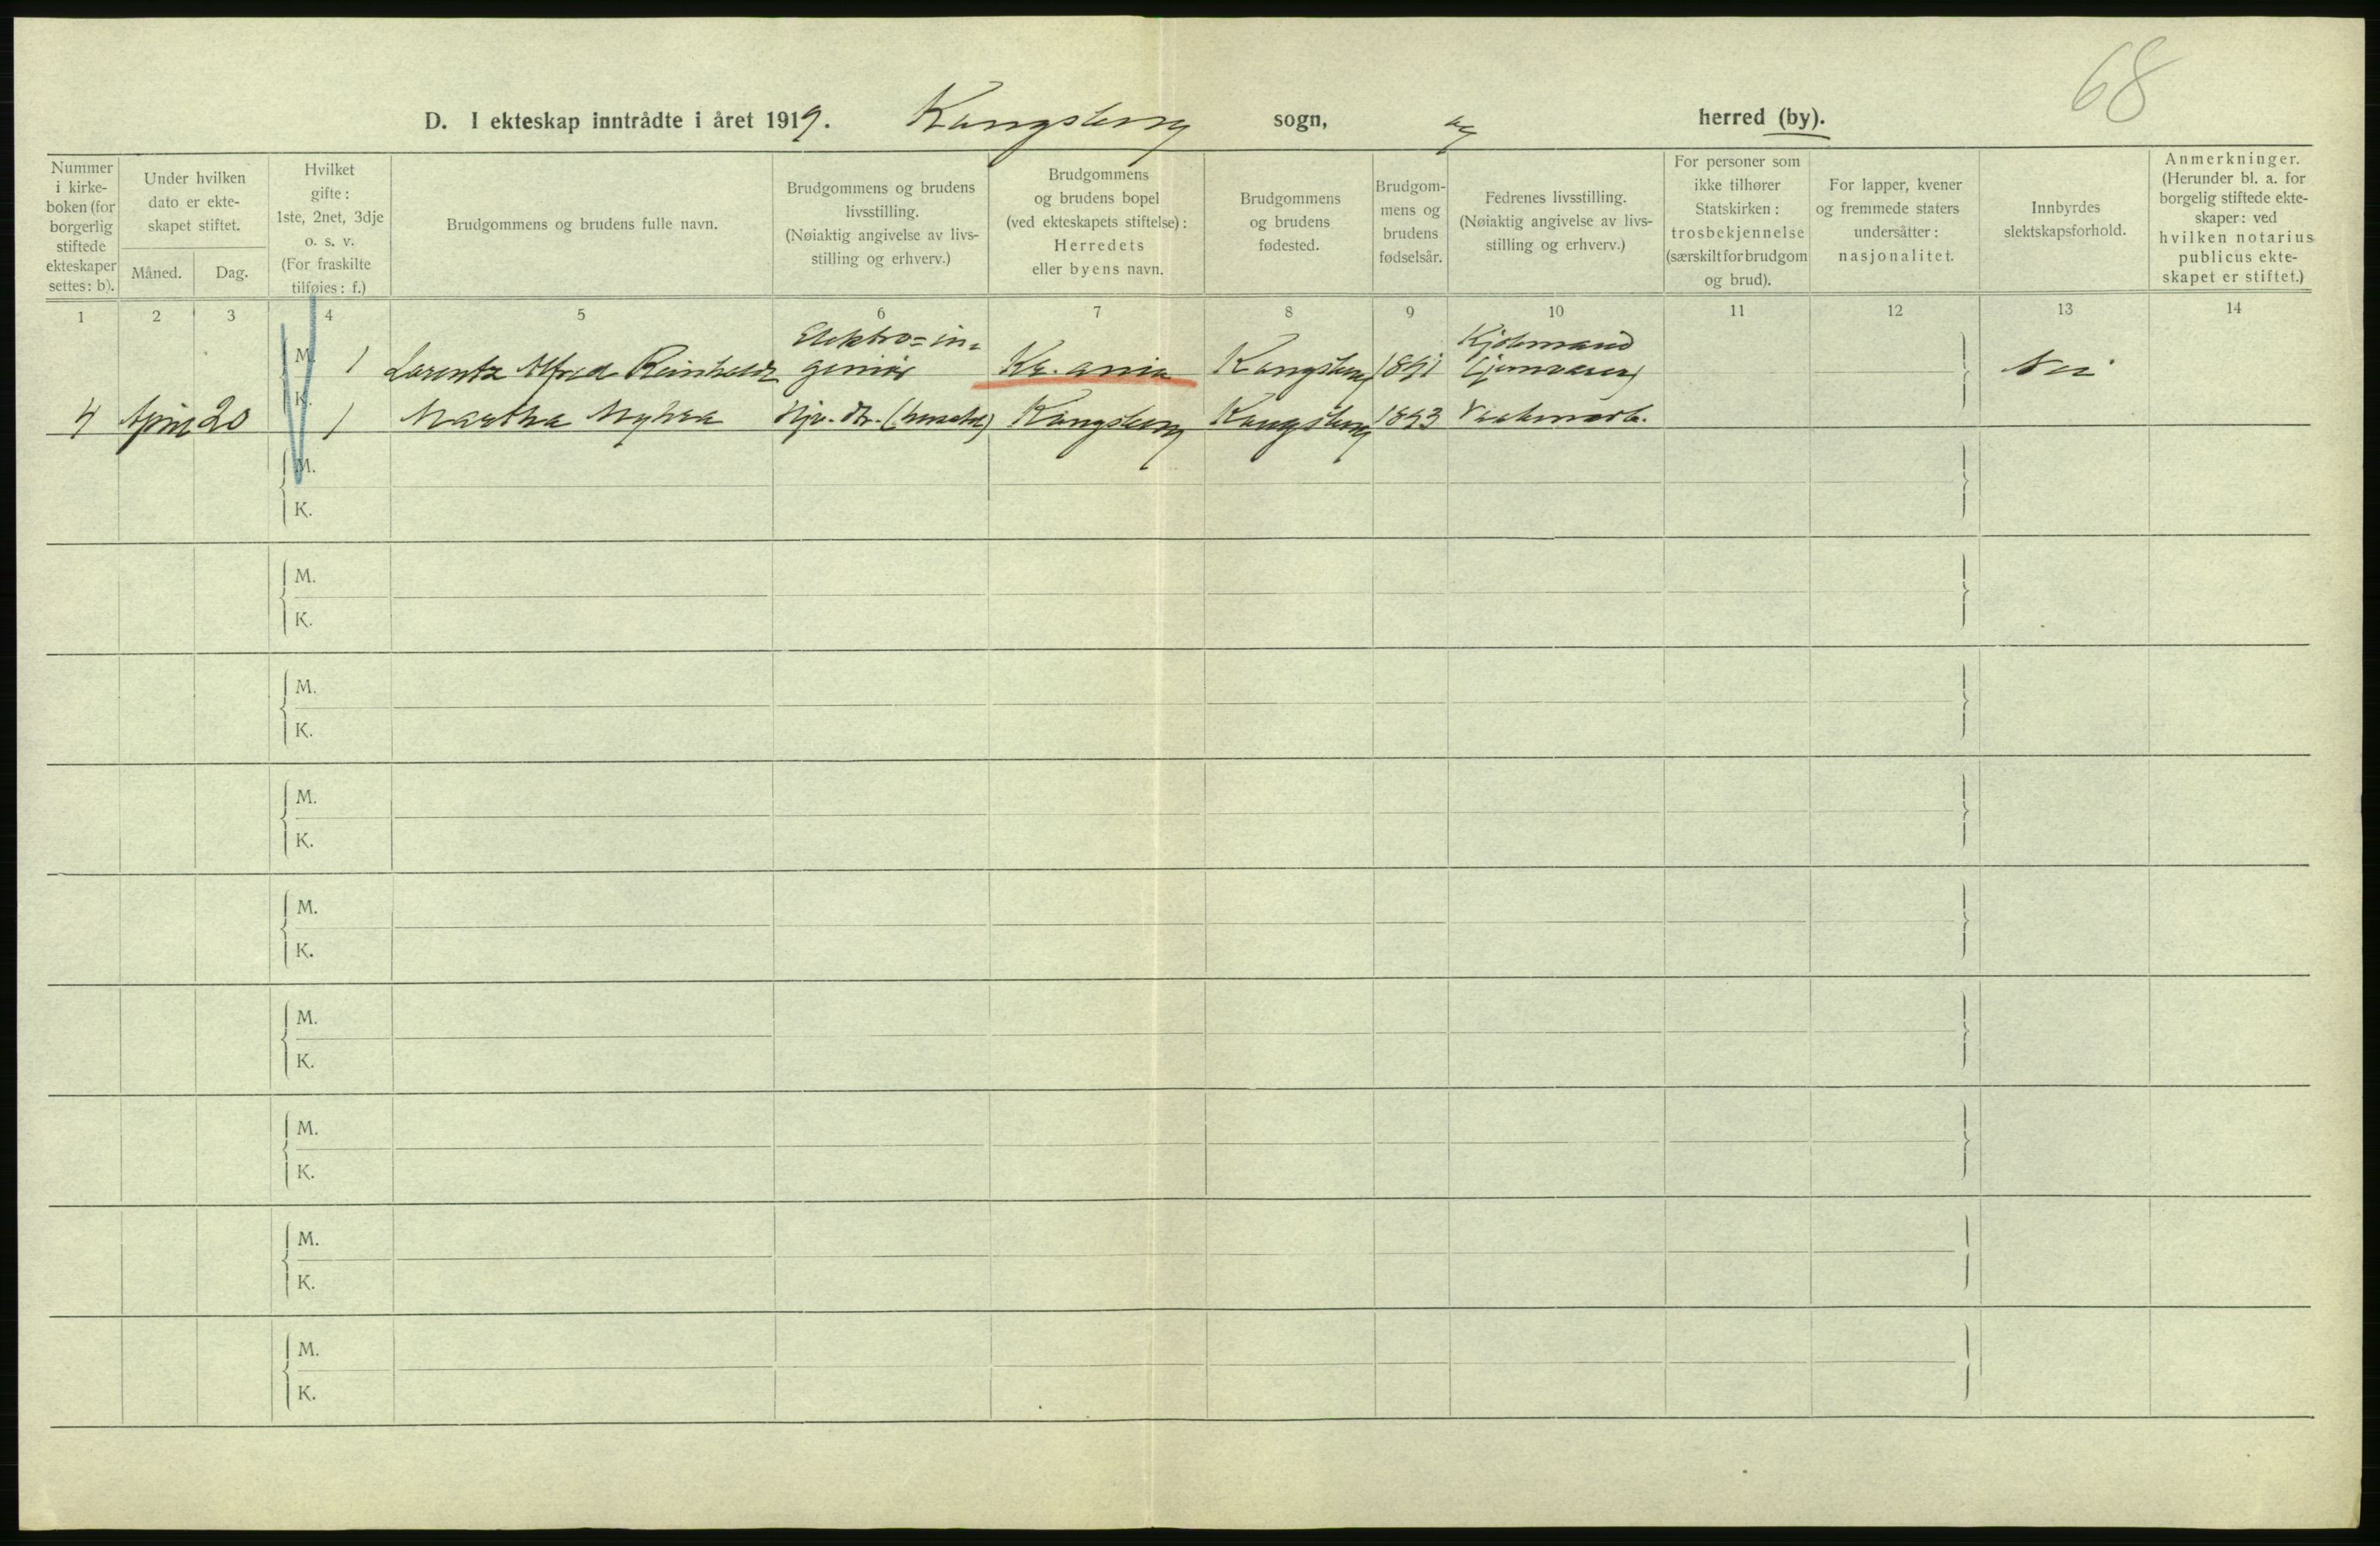 68
D. I ekteskap inntrådte i året 1919. Kongsberg sogn, og herred (by).
Nummer
i kirke-
boken (for
borgerlig
stiftede
ekteskaper
settes: b).
Under hvilken
dato er ekte-
skapet stiftet.
Måned.
Dag.
Hvilket
gifte:
1ste, 2net, 3dje
o. s. v.
(For fraskilte
tilføies: f.)
Brudgommens og brudens fulle navn.
Brudgommens og brudens
livsstilling.
(Nøiaktig angivelse av livs-
stilling og erhverv.)
Brudgommens
og brudens bopel
(ved ekteskapets stiftelse):
Herredets
eller byens navn.
Brudgommens
og brudens
fødested.
Brudgom-
mens og
brudens
fødselsår.
Fedrenes livsstilling.
(Nøiaktig angivelse av livs-
stilling og erhverv.)
For personer som
ikke tilhører
Statskirken:
trosbekjennelse
(særskilt for brudgom
og brud).
For lapper, kvener
og fremmede staters
undersåtter:
nasjonalitet.
Innbyrdes
slektskapsforhold.
Anmerkninger.
(Herunder bl. a. for
borgelig stiftede ekte-
skaper: ved
hvilken notarius
publicus ekte-
skapet er stiftet.)
1 2 3 4 5 6 7 8 9 10 11 12 13 14
Elektro=in= Kjøbmand
M. 1 Lorentz Alfred Reinholdt geniør Kr.ania Kongsberg 1891 (Jernvarer) Nei
4 April 20 K. 1 Martha Myhra Hjv. dtr. Kongsberg Kongsberg 1893
M.
K.
M.
K.
M.
K.
M.
K.
M.
K.
M.
K.
M.
K.
M.
K.
M.
K.